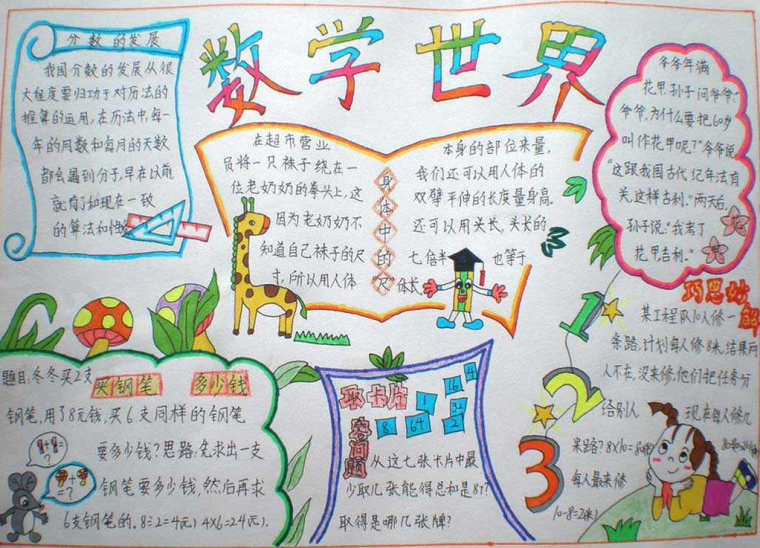 数学世界
分数的发展
我国分数的发展从很
大程度要归功于对历法的
推算的运用,在历法中,每一
年的周数和每月的天数
都会遇到分子,早在以前
就有了如现在一致
的算法和
在超市营业
员将一只袜子绕在一
位老奶奶的拳头上,这
因为老奶奶不
知道自己袜子的尺
寸,所以用人体
身体中的尺
本身的部位来量,
我们还可以用人体的
双臂平伸的长度量身高。
还可以用头长,头长的
七倍半 也等于
体长
爷爷年满
花甲,孙子问爷爷:“
爷爷,为什么要把60岁
叫作花甲呢?”爷爷说
“这跟我国古代纪年法有
关,这样吉利。”两天后,
孙子说:“我考了
花甲吉利。”
买钢笔 多少钱
题目:冬冬买2支
钢笔,用了8元钱,买6支同样的钢笔
要多少钱?思路:先求出一支
钢笔要多少钱,然后再求
6支钢笔的。8÷2=4(元) 4×6=24(元)。
取卡片
的问题
1 16 4
8 64 32 2
从这七张卡片中最
少取几张能得总和是87?
取得是哪几张牌?
1
2
3
巧思妙解
某工程队10人修一
条路,计划每人修8米,结果两
人不在,没来修,他们把任务分
给别人 现在每人修几
米路?8×10=80(米)
每人最来修
10-8=2(米)